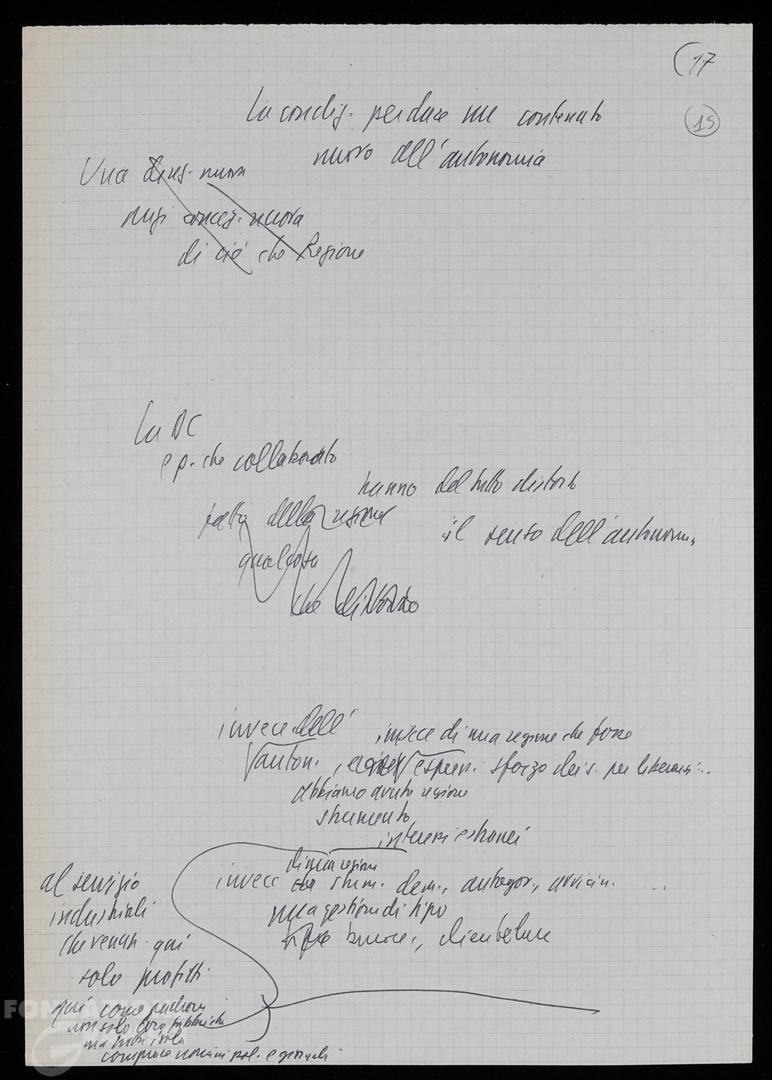 17
15
La condiz. per dare un contenuto
nuovo dell'autonomia
Una nuova
concez. nuova
di ciò che Regione
La DC
e p. che collaborato
hanno del tutto distorto
fatto della regione
il senso dell'autonomia
qualcosa
che
invece dell'
invece di una regione che fosse
auton., espress. sforzo dei s. per liberarsi...
abbiamo avuto regione
strumento
interessi estranei
di una regione
invece strum. dem., autogov., avvicin. ...
una gestione di tipo
tipo burocr., clientelare
al servizio
industriali
che venuti qui
solo profitti
qui come padroni
non solo loro fabbriche
ma tutta isola
comprare uomini pol. e giornali
FONDAZIO